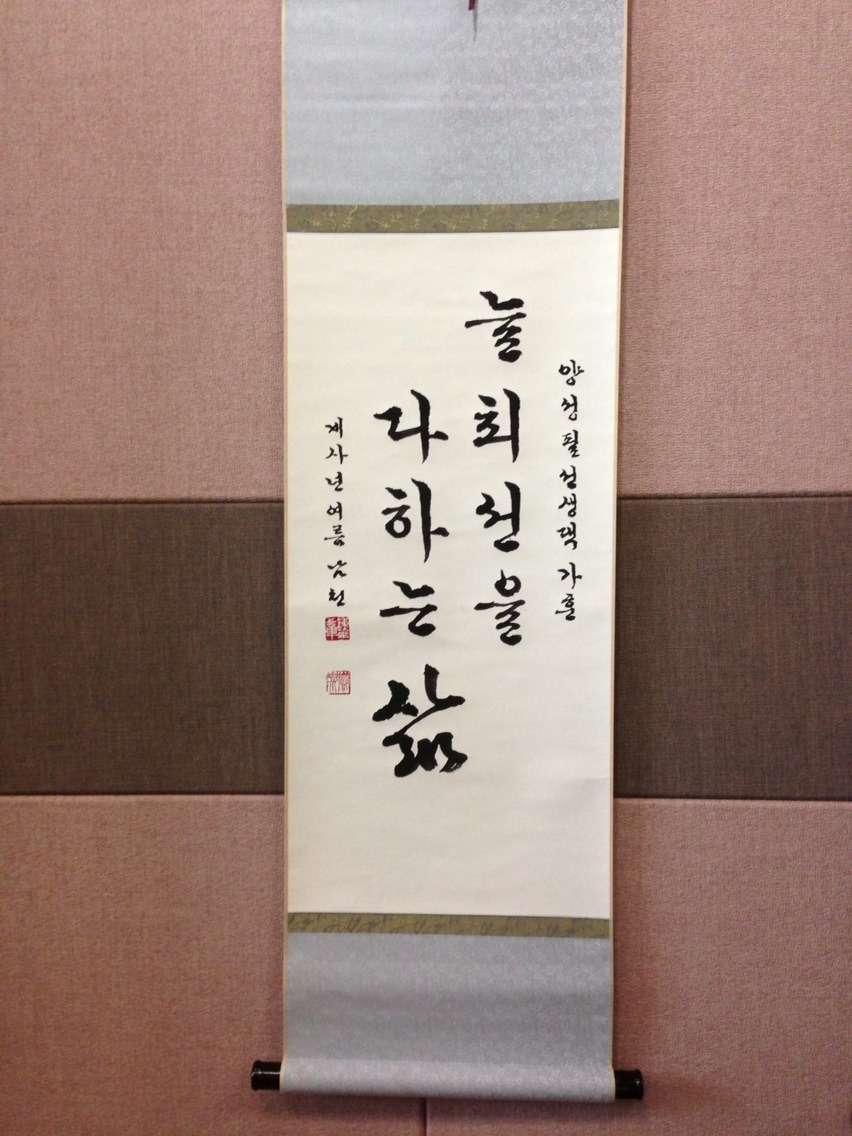 양성필선생댁 가훈
늘 최선을
다하는 삶
계사년 여름 남천